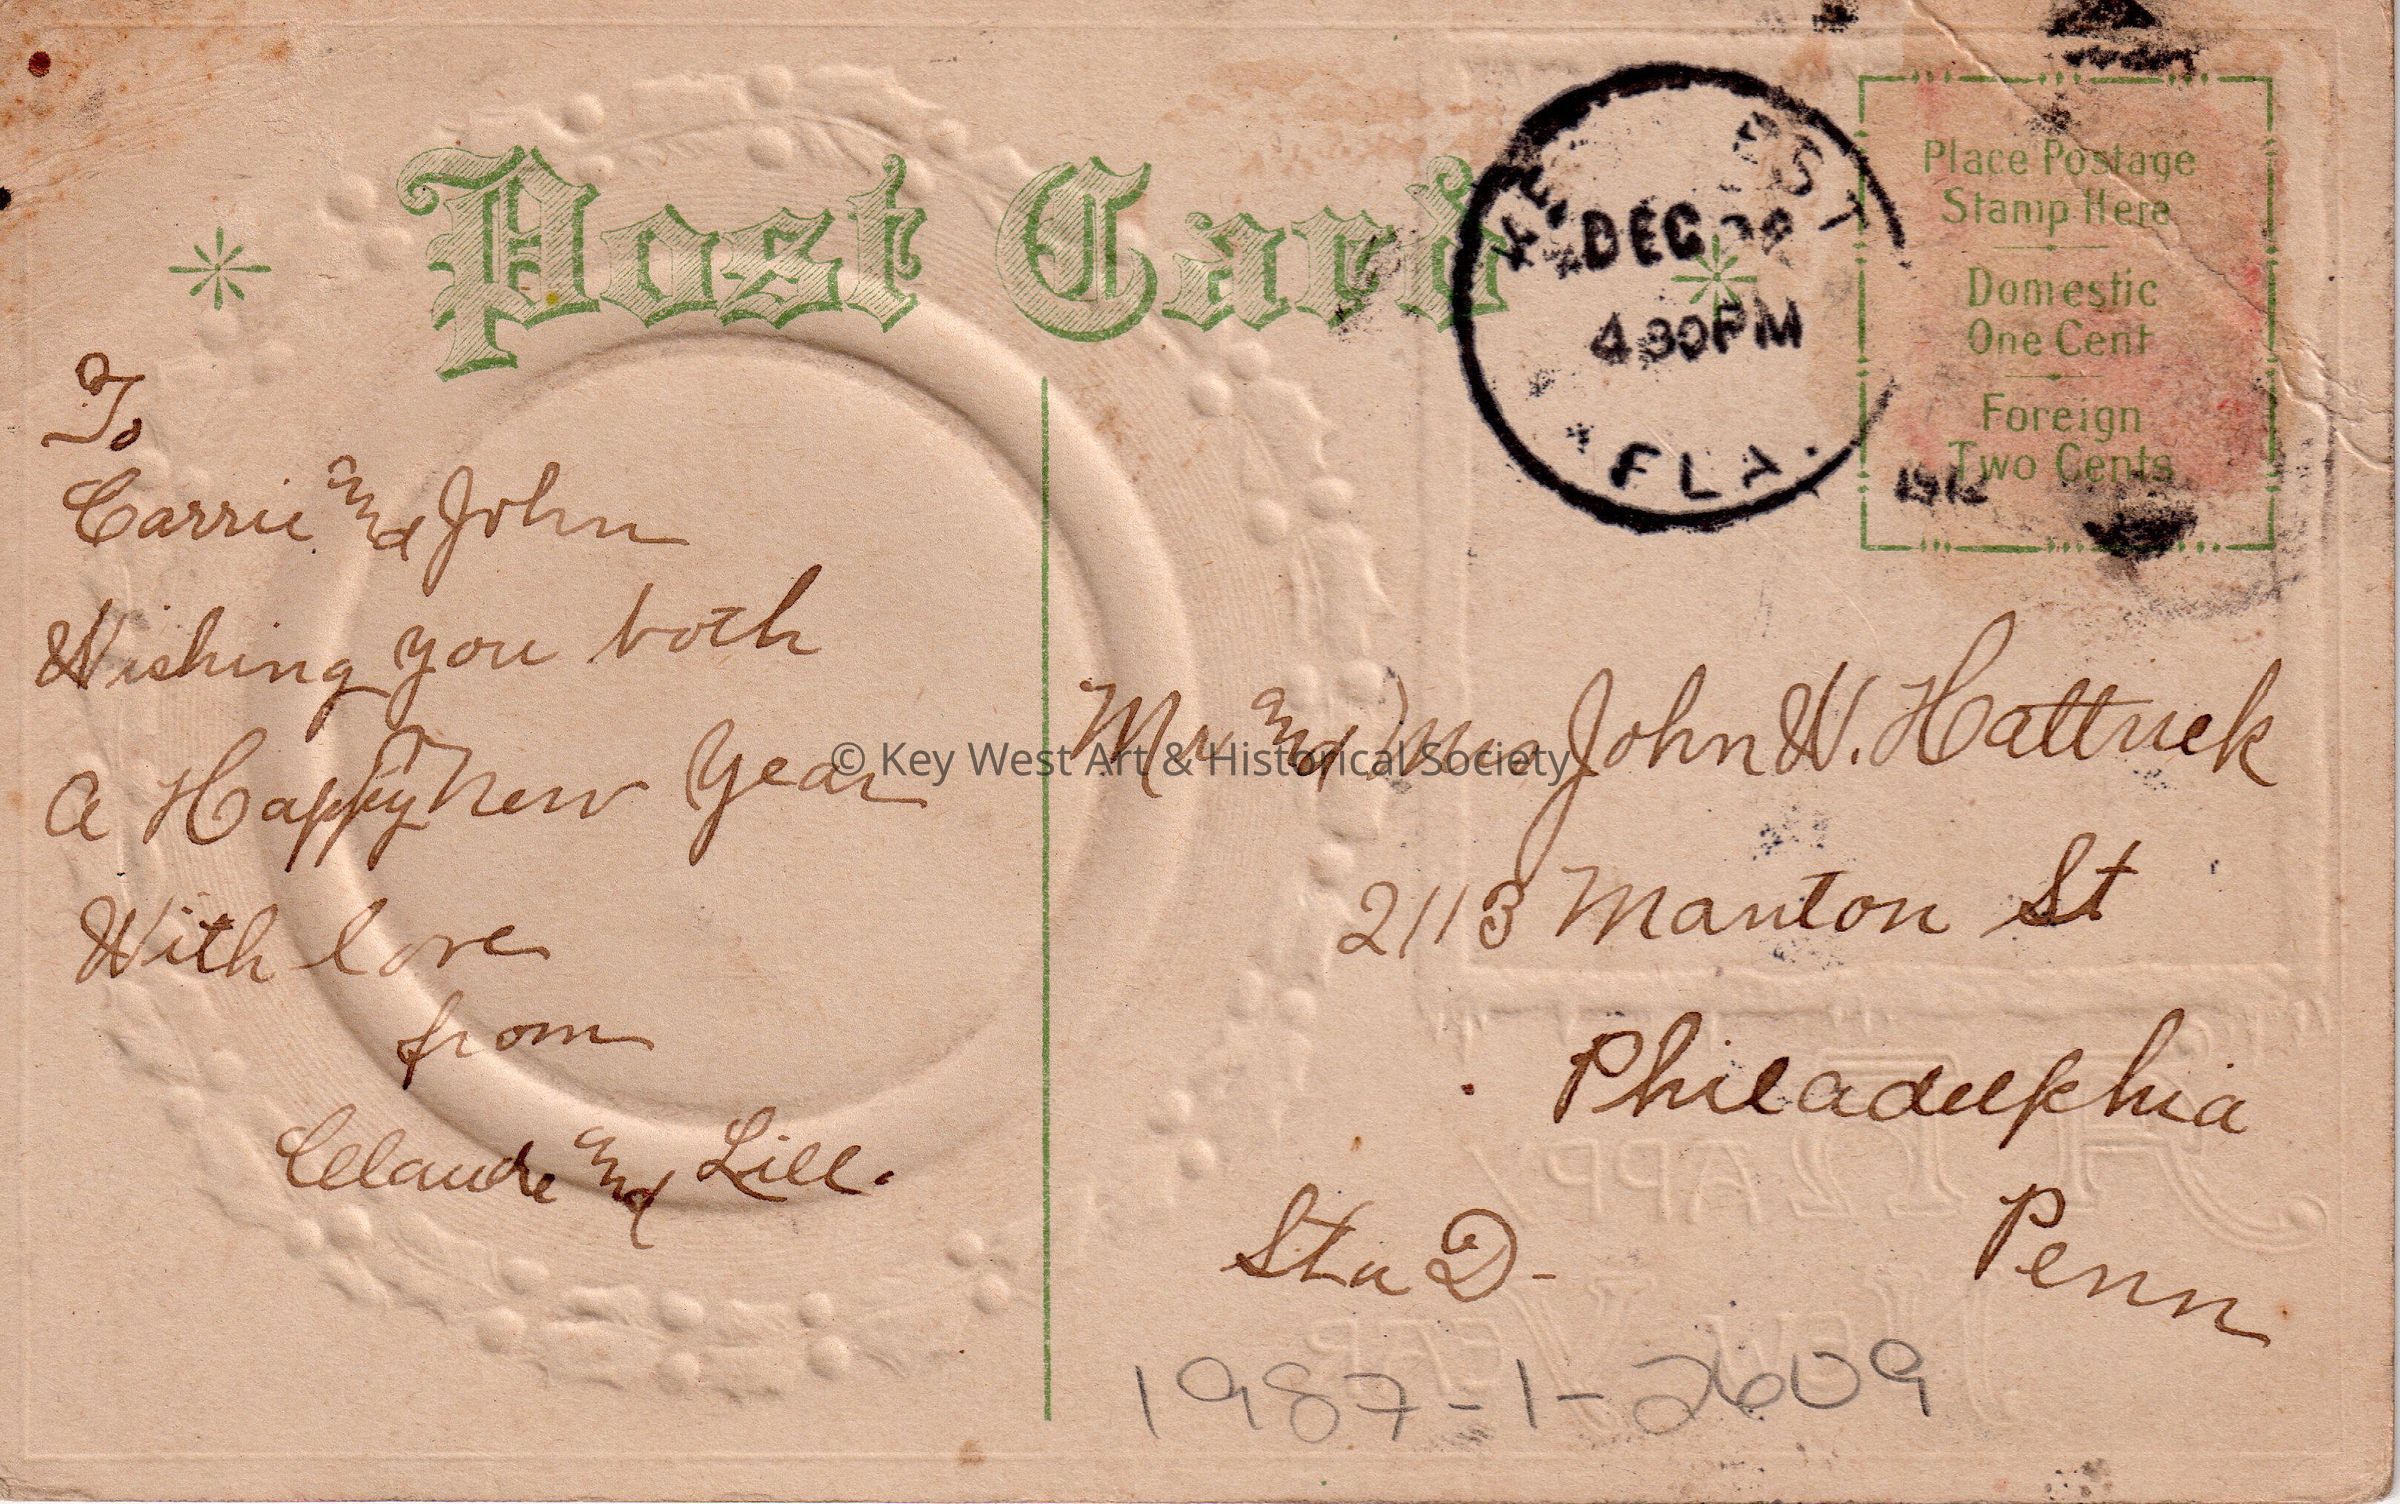 Post Card
KEY WEST
DEC
4 30 PM
FLA.
1912
Place Postage
Stamp Here
Domestic
One Cent
Foreign
Two Cents
To
Carrie and John
Wishing you both
A Happy New Year
With love
from
Claude and Lill.
Mr and Mrs John W. Hattrick
2113 Manton St
Philadelphia
Sta D- Penn
1987-1-2609
© Key West Art & Historical Society